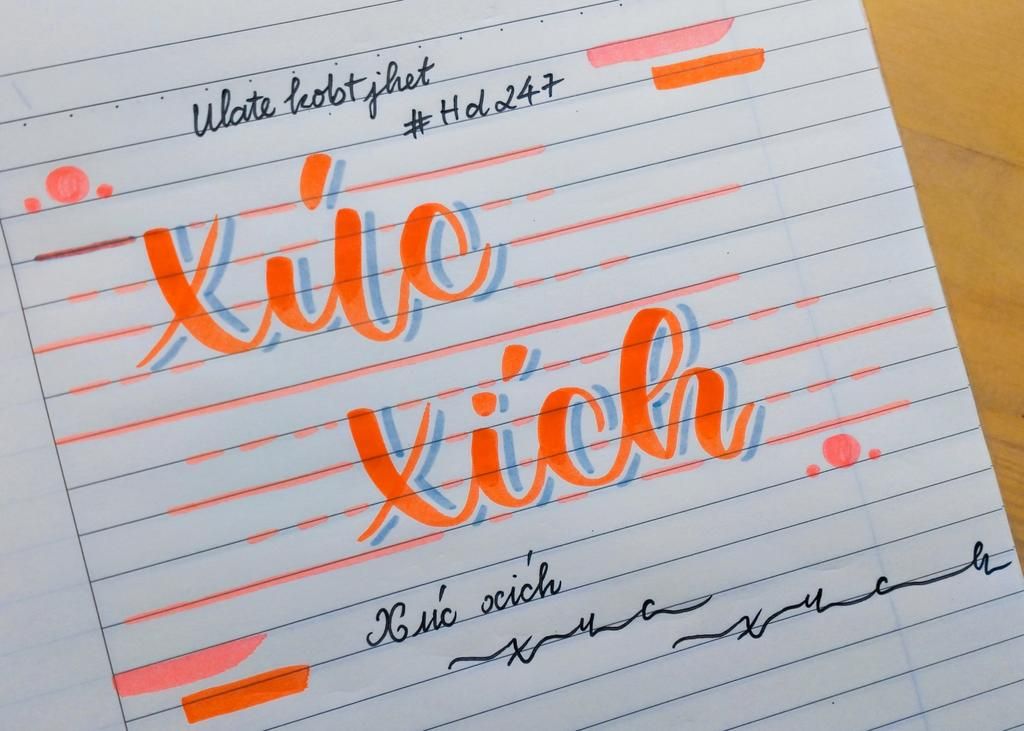 Ulate kobt jhet
#Hd247
Xúc
xích
Xúc xích
xuc xuch